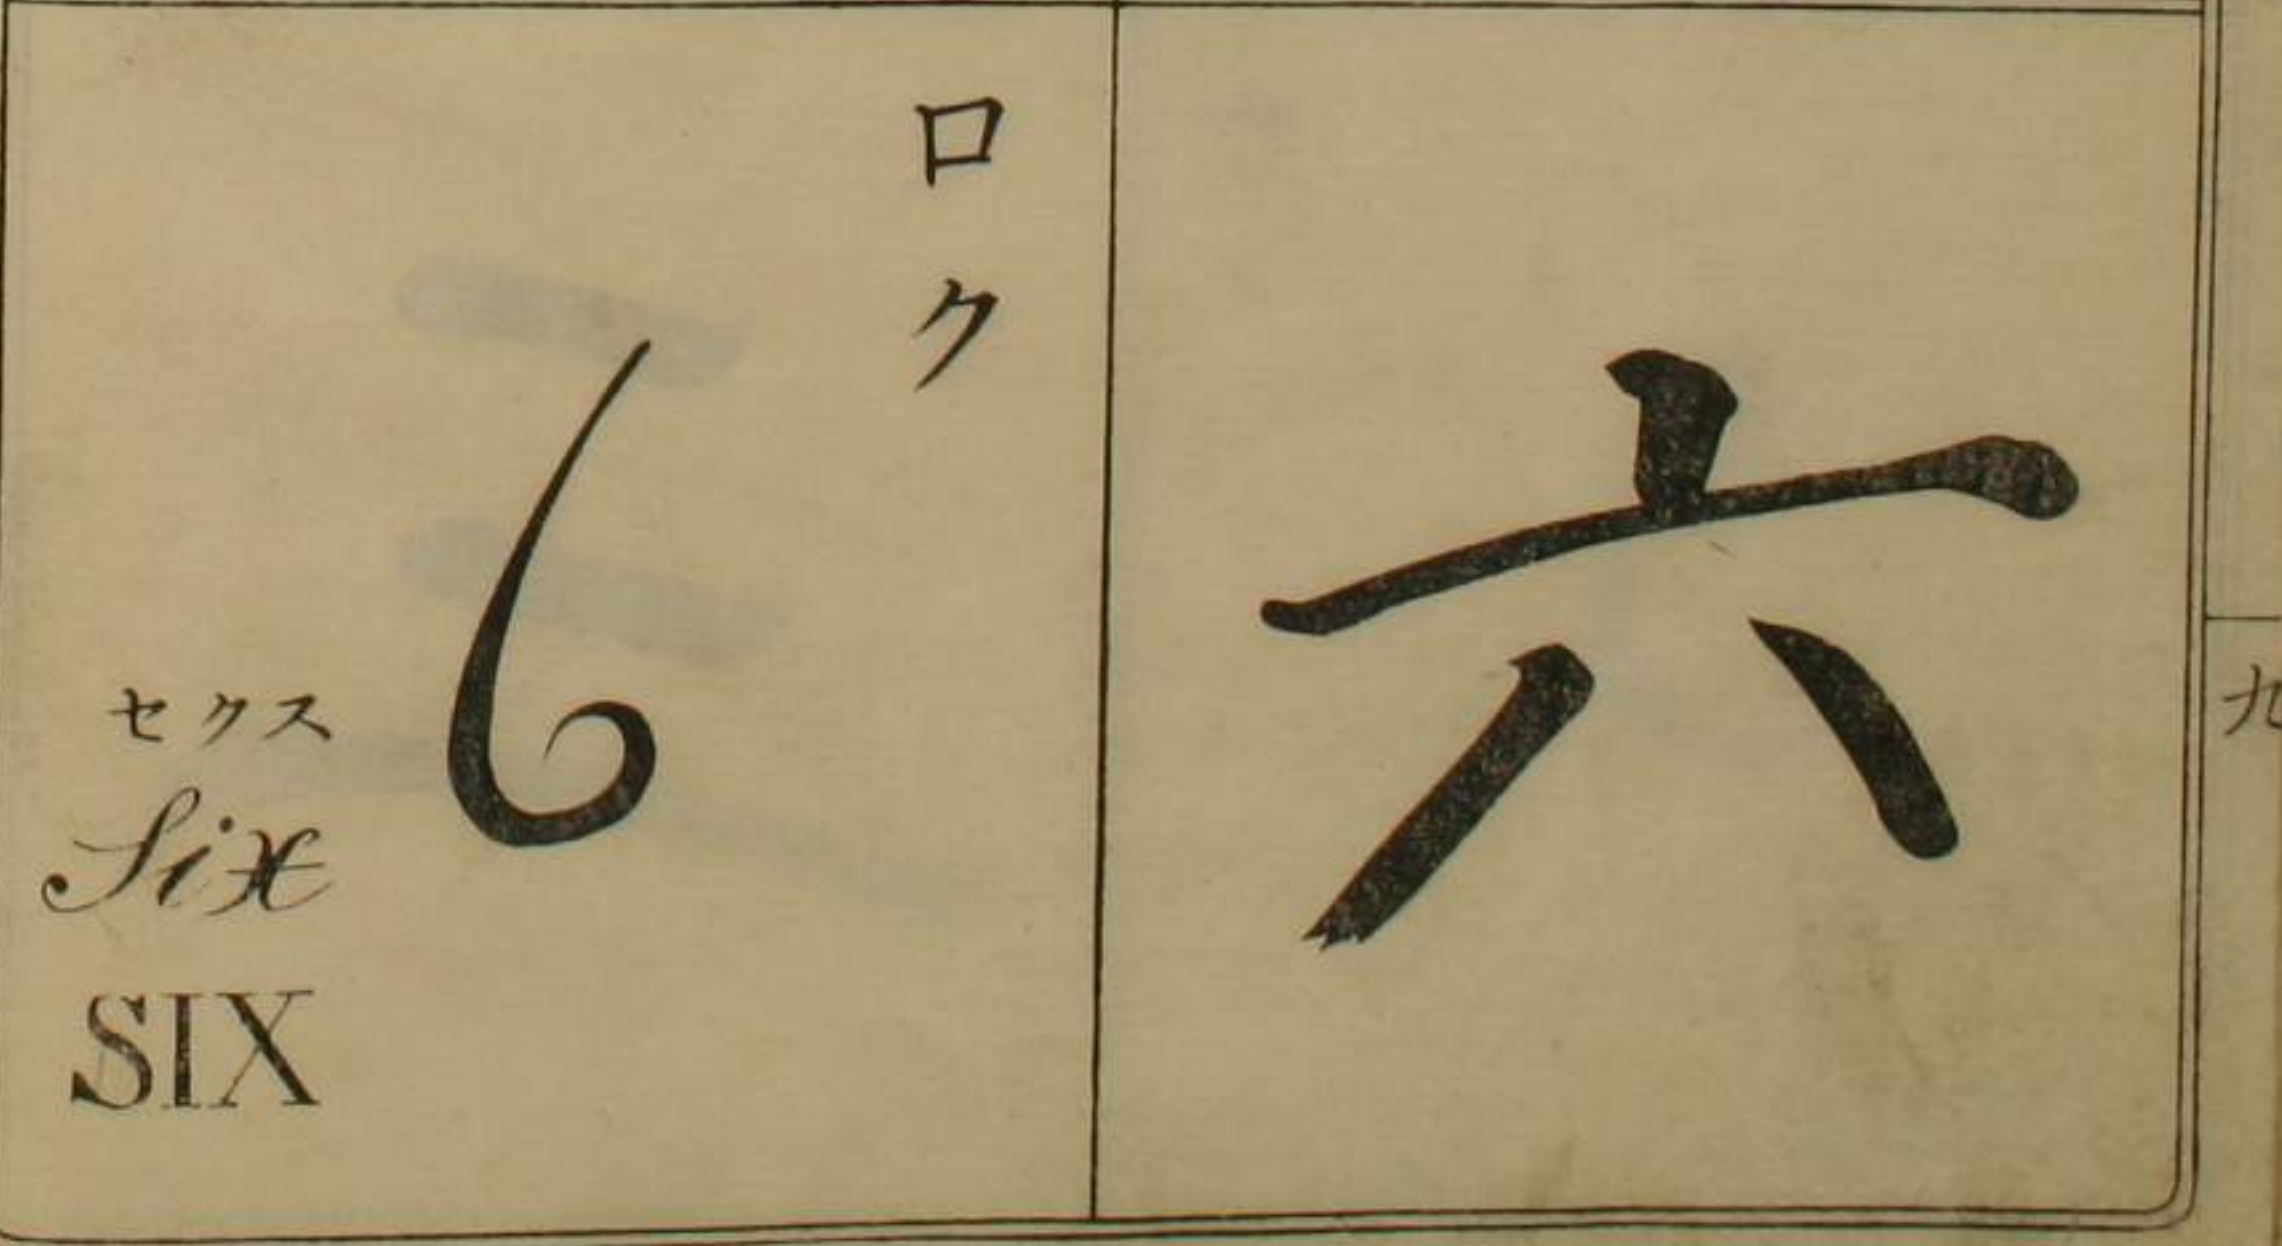 六
ロク
6
セクス
Six
SIX
九